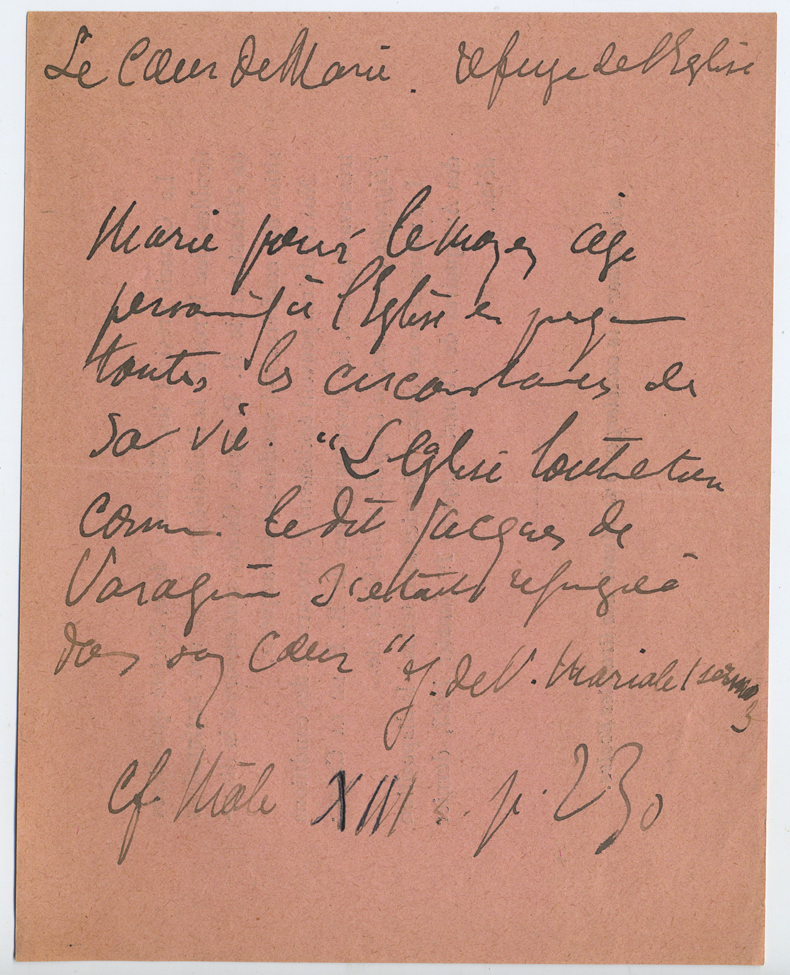 Le Cœur de Marie. refuge de l'Eglise
Marie pour le moyen age
personnifie l'Eglise en presque
toutes les circonstances de
sa vie. "L'Eglise tout entière
comme le dit Jacques de
Varagine s'était réfugiée
dans son cœur" J. de V. Mariale I sermo 3
cf. Mâle XIII s. p. 230